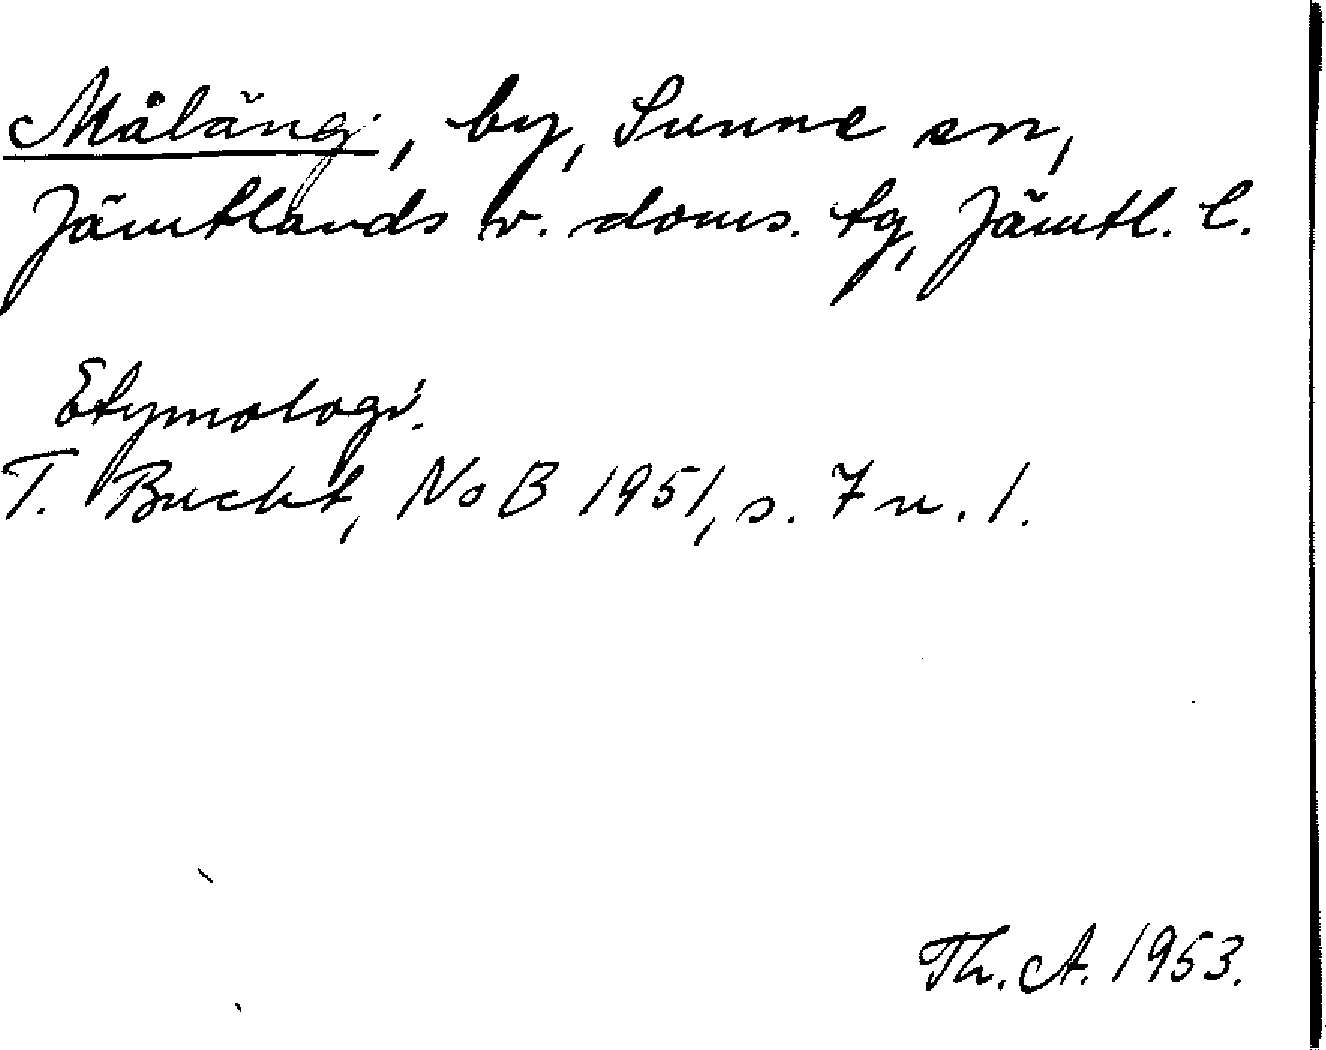 Måläng, by, Sunne sn,
Jämtlands v. doms. tg, Jämtl. l.
Etymologi.
T. Bucht, NoB 1951, s. 7 n. 1.
Th. A. 1953.